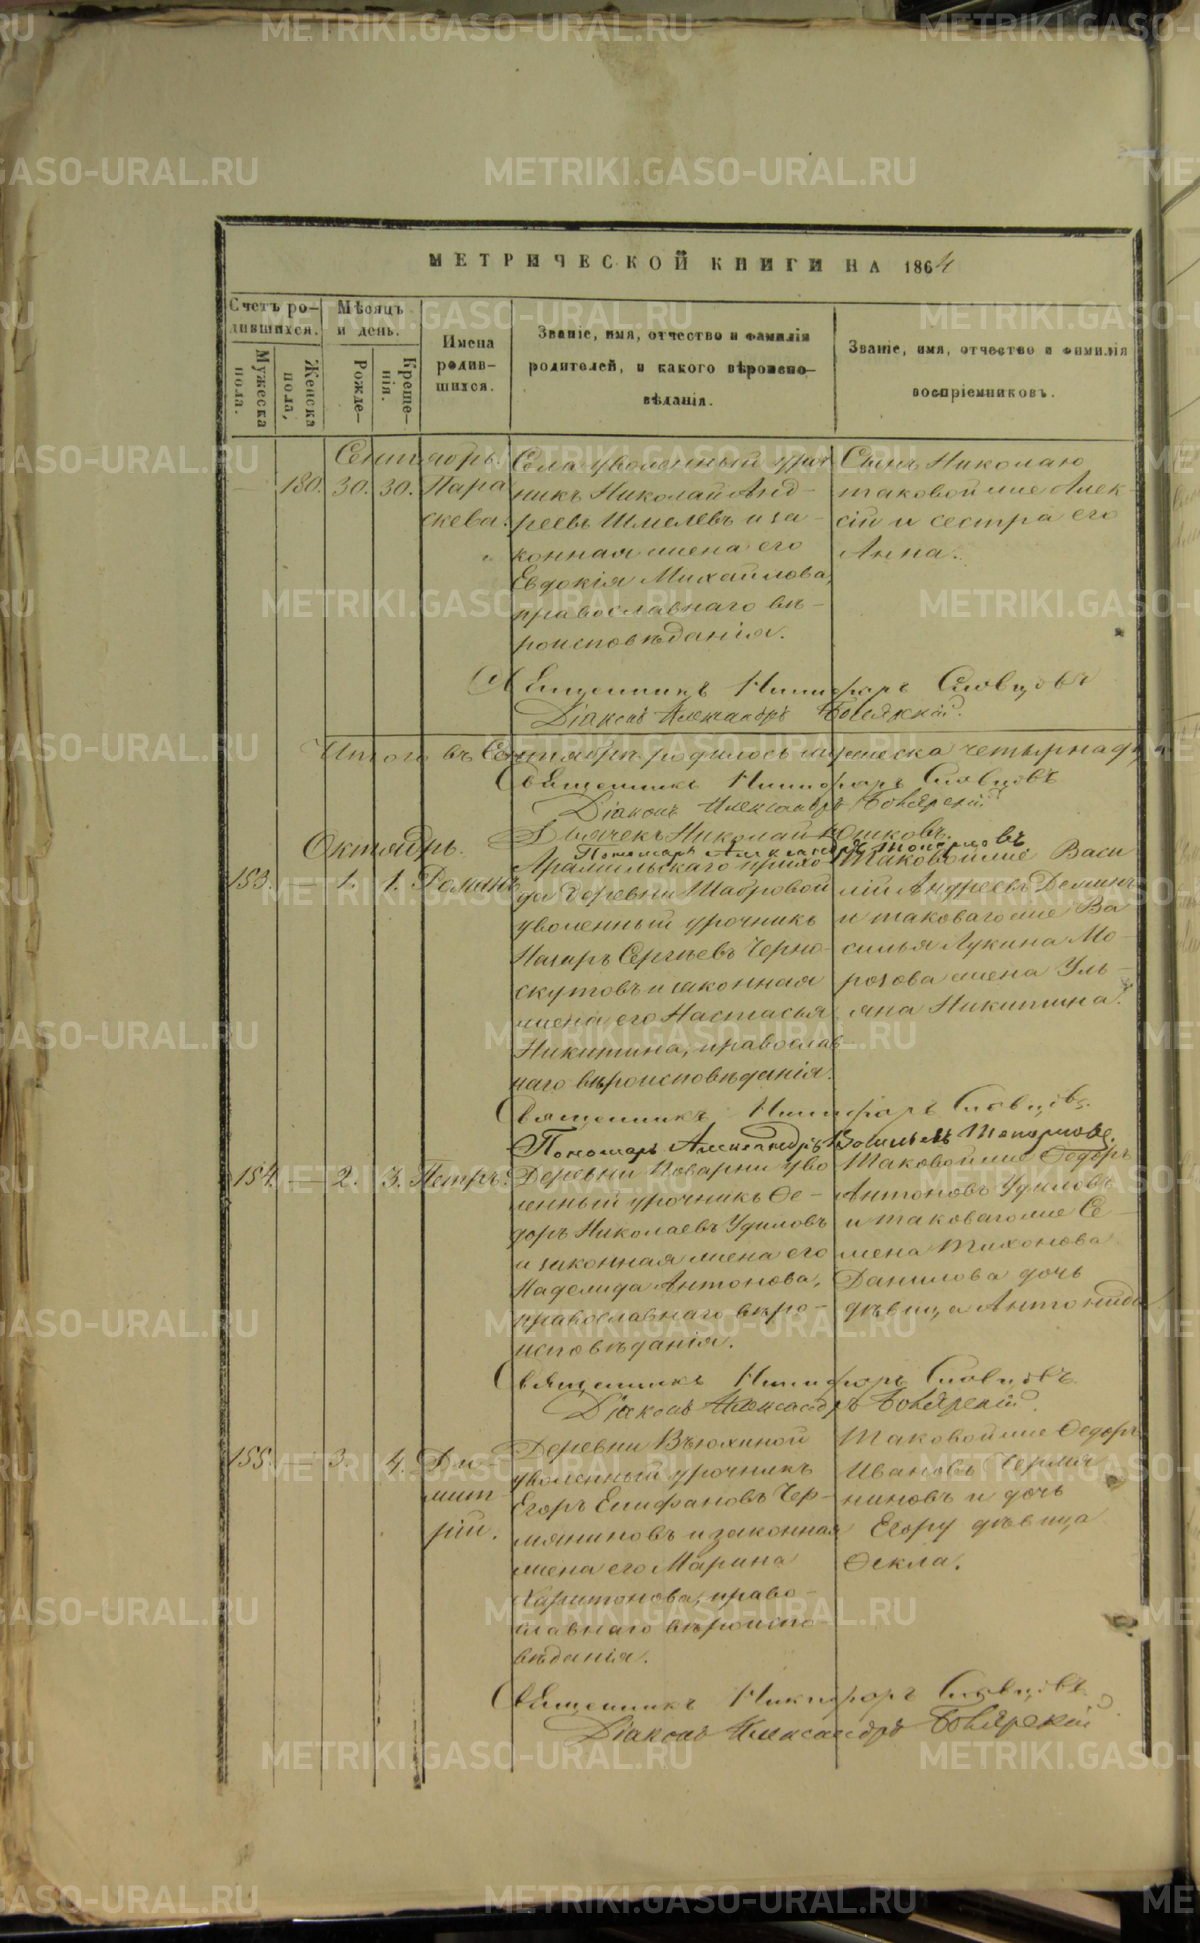 МЕТРИЧЕСКОЙ КНИГИ НА 1864
Счетъ ро-
дившихся.
Мужеска
пола.
Женска
пола,
Мѣсяцъ
и день.
Рожде-
Креще-
нія.
Имена
родив-
шихся.
Званіе, имя, отчество и фамилія
родителей, и какого вѣроиспо-
вѣданія.
Званіе, имя, отчество и фимилія
воспріемниковъ.
Сентябрь
130. 30. 30. Пара
скева.
Села уволенный уроч
никъ Николай Анд-
реевъ Шмелевъ и за-
конная жена его
Евдокія Михайлова,
православнаго вѣ-
роисповѣданія.
Сынъ Николаю
таковой же Алек-
сій и сестра его
Анна.
Священникъ Никифоръ Словцовъ
Діаконъ Александръ Боярскій.
Итого въ Сентябрѣ родилось мужеска четырнадц
Священникъ Никифоръ Словцовъ
Діаконъ Александръ Боярскій
Дьячекъ Николай
Пономарь Александръ Топорковъ
Октябрь.
153. 1. 1. Романъ
Арамильскаго прихо
да деревни Шабровой
уволенный урочникъ
Назаръ Сергѣевъ Черно-
скутовъ и законная
жена его Настасья
Никитина, православ
наго вѣроисповѣданія.
Таковой же Васи
лій Андреевъ
и таковаго же Ва
силья Лукина Мо-
розова жена Уль-
яна Никитина.
Священникъ Никифоръ Словцовъ.
Пономарь Александръ Васильевъ Топорковъ.
154. — 2. 3. Петръ.
Деревни Поварни уво
ленный урочникъ Ѳе-
доръ Николаевъ Удиловъ
и законная жена его
Надежида Антонова,
православнаго вѣро-
исповѣданія.
Таковой же Ѳедоръ
Антоновъ Удиловъ
и таковаго же Се-
мена Тихонова
Данилова дочь
дѣвица Антонида
Священникъ Никифоръ Словцовъ.
Діаконъ Александръ Боярскій.
155. 3. 4. Ди-
мит-
рій.
Деревни Вьюхиной
уволенный урочникъ
Егоръ Епифановъ Чер-
мяниновъ и законная
жена его Марина
Харитонова, право-
славнаго вѣроиспо-
вѣданія.
Таковой же Ѳедоръ
Ивановъ Чермя
ниновъ и дочь
Егору дѣвица
Ѳекла.
Священникъ Никифоръ Словцовъ
Діаконъ Александръ Боярскій
METRIKI.GASO-URAL.RU